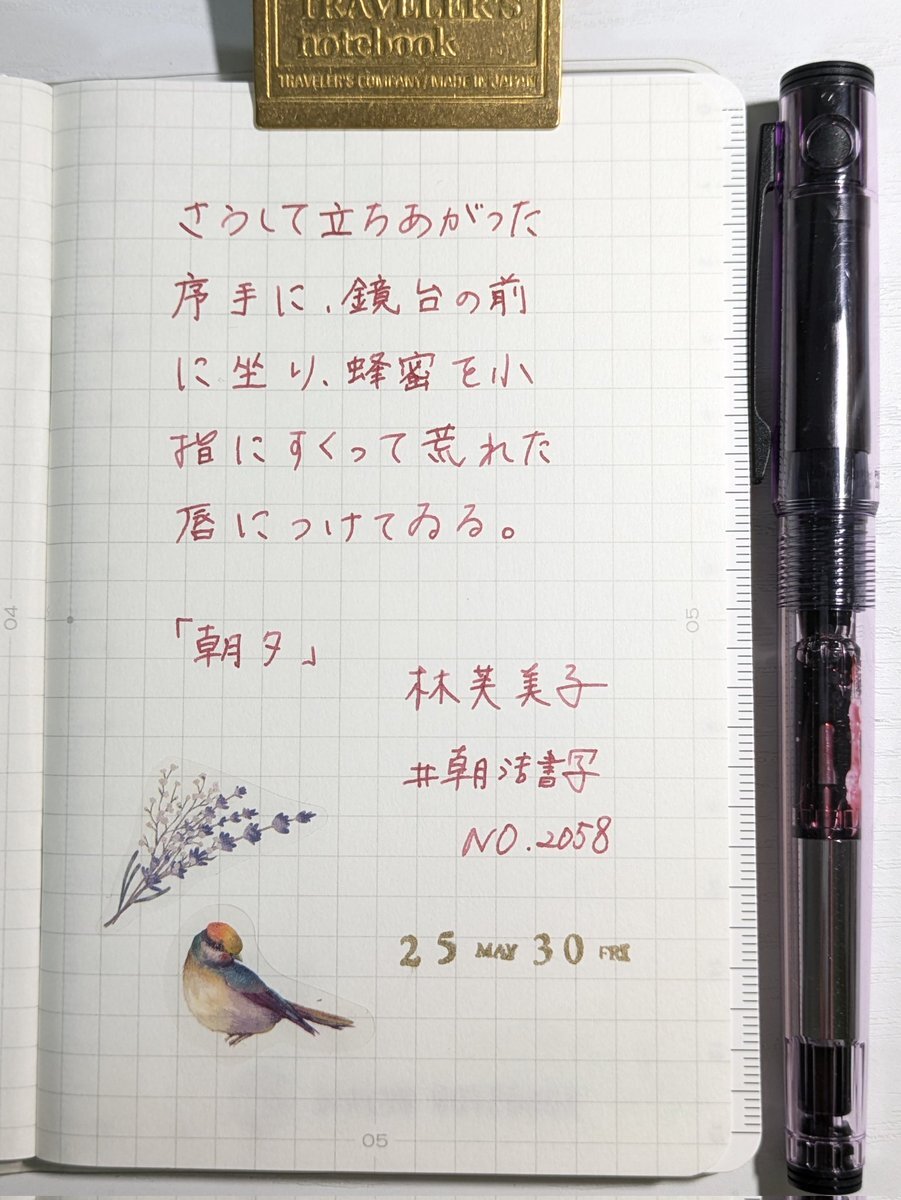 TRAVELER'S
notebook
TRAVELER'S COMPANY/MADE IN JAPAN
さうして立ちあがった
序手に、鏡台の前
に坐り、蜂蜜を小
指にすくって荒れた
唇につけてゐる。
「朝夕」
林芙美子
#朝活書写
NO.2058
25 MAY 30 FRI
04
05
05